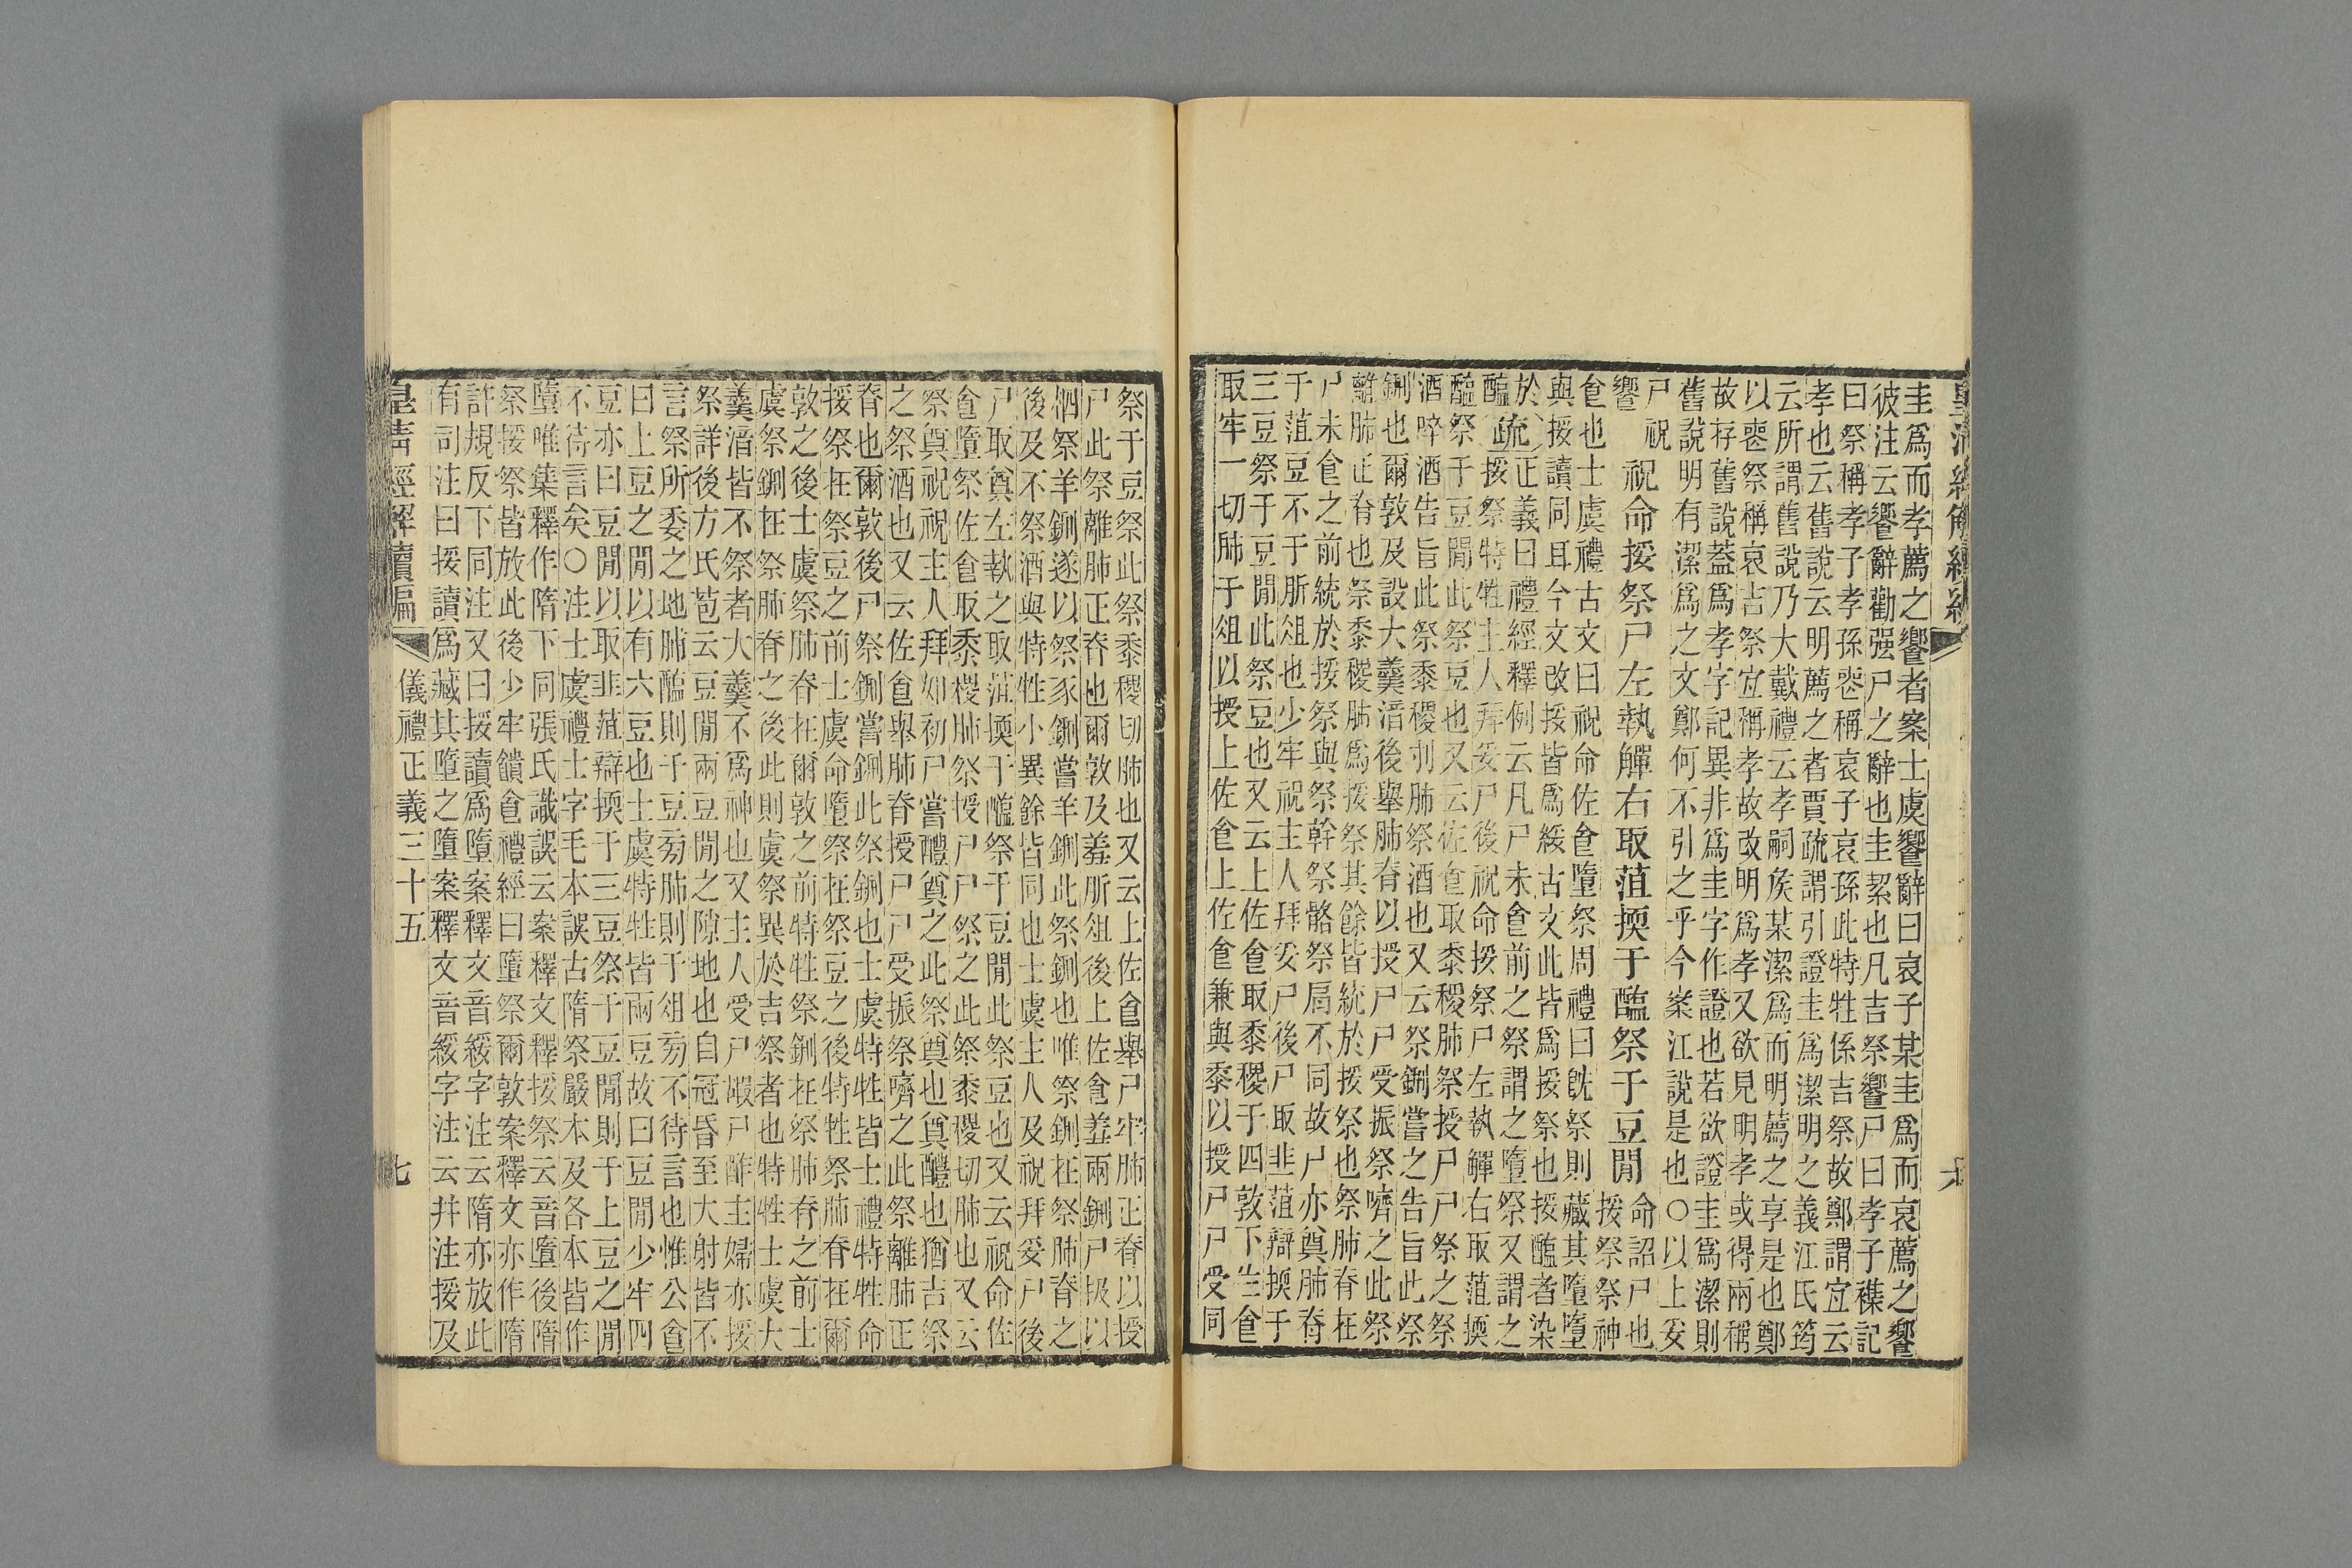 皇清經解續編 六
圭爲而孝薦之饗者案士虞饗辭曰哀子某圭爲而哀薦之饗
彼注云饗辭勸强尸之辭也圭絜也凡吉祭饗尸曰孝子襍記
曰祭稱孝子孝孫喪稱哀子哀孫此特牲係吉祭故鄭謂宜云
孝也云舊說云明薦之者賈疏謂引證圭爲潔明之義江氏筠
云所謂舊說乃大戴禮云孝嗣矦某潔爲而明薦之享是也鄭
以喪祭稱哀吉祭宜稱孝故改明爲孝又欲見明孝或得兩稱
故存舊說葢爲孝字記異非爲圭字作證也若欲證圭爲潔則
舊說明有潔爲之文鄭何不引之乎今案江說是也○以上妥
尸祝
饗
祝命挼祭尸左執觶右取菹㨎于醢祭于豆閒
命詔尸也
挼祭祭神
食也士虞禮古文曰祝命佐食墮祭周禮曰旣祭則藏其墮墮
與挼讀同耳今文改挼皆爲綏古文此皆爲挼祭也挼醢者染
於醢
疏
正義曰禮經釋例云凡尸未食前之祭謂之墮祭又謂之
挼祭特牲主人拜妥尸後祝命挼祭尸左執觶右取菹㨎
醢祭于豆閒此祭豆也又云佐食取黍稷肺祭授尸尸祭之祭
酒啐酒告旨此祭黍稷刌肺祭酒也又云祭鉶嘗之告旨此祭
鉶也爾敦及設大羹湆後舉肺脊以授尸尸受振祭嚌之此祭
離肺正脊也祭黍稷肺爲挼祭其餘皆統於挼祭也祭肺脊在
尸未食之前統於挼祭與祭幹祭骼祭肩不同故尸亦奠肺脊
于菹豆不于肵俎也少牢祝主人拜妥尸後尸取韭菹辯㨎于
三豆祭于豆閒此祭豆也又云上佐食取黍稷于四敦下佐食
取牢一切肺于俎以授上佐食上佐食兼與黍以授尸尸受同
祭于豆祭此祭黍稷切肺也又云上佐食舉尸牢肺正脊以授
尸此祭離肺正脊也爾敦及羞肵俎後上佐食羞兩鉶尸扱以
柶祭羊鉶遂以祭豕鉶嘗羊鉶此祭鉶也唯祭鉶在祭肺脊之
後及不祭酒與特牲小異餘皆同也士虞主人及祝拜妥尸後
尸取奠左執之取菹㨎于醢祭于豆閒此祭豆也又云祝命佐
食墮祭佐食取黍稷肺祭授尸尸祭之此祭黍稷切肺也又云
祭奠祝祝主人拜如初尸嘗醴奠之此祭奠也奠醴也猶吉祭
之祭酒也又云佐食舉肺脊授尸尸受振祭嚌之此祭離肺正
脊也爾敦後尸祭鉶嘗鉶此祭鉶也士虞特牲皆士禮特牲命
挼祭在祭豆之前士虞命墮祭在祭豆之後特牲祭肺脊在爾
敦之後士虞祭肺脊在爾敦之前特牲祭鉶在祭肺脊之前士
虞祭鉶在祭肺脊之後此則虞祭異於吉祭者也特牲士虞大
羹湆皆不祭者大羹不爲神也又主人受尸嘏尸酢主婦亦挼
祭詳後方氏苞云豆閒兩豆閒之隙地也自冠昏至大射皆不
言祭所委之地肺醢則于豆旁肺則于俎旁不待言也惟公食
曰上豆之閒以有六豆也士虞特牲皆兩豆故曰豆閒少牢四
豆亦曰豆閒以取韭菹辯㨎于三豆祭于豆閒則于上豆之閒
不待言矣○注士虞禮士字毛本誤古隋祭嚴本及各本皆作
墮唯集釋作隋下同張氏識誤云案釋文釋挼祭云音墮後隋
祭挼祭皆放此後少牢饋食禮經曰墮祭爾敦案釋文亦作隋
許規反下同注又曰挼讀爲墮案釋文音綏字注云隋亦放此
有司注曰挼讀爲藏其墮之墮案釋文音綏字注云幷注挼及
皇清經解續編 儀禮正義三十五 七